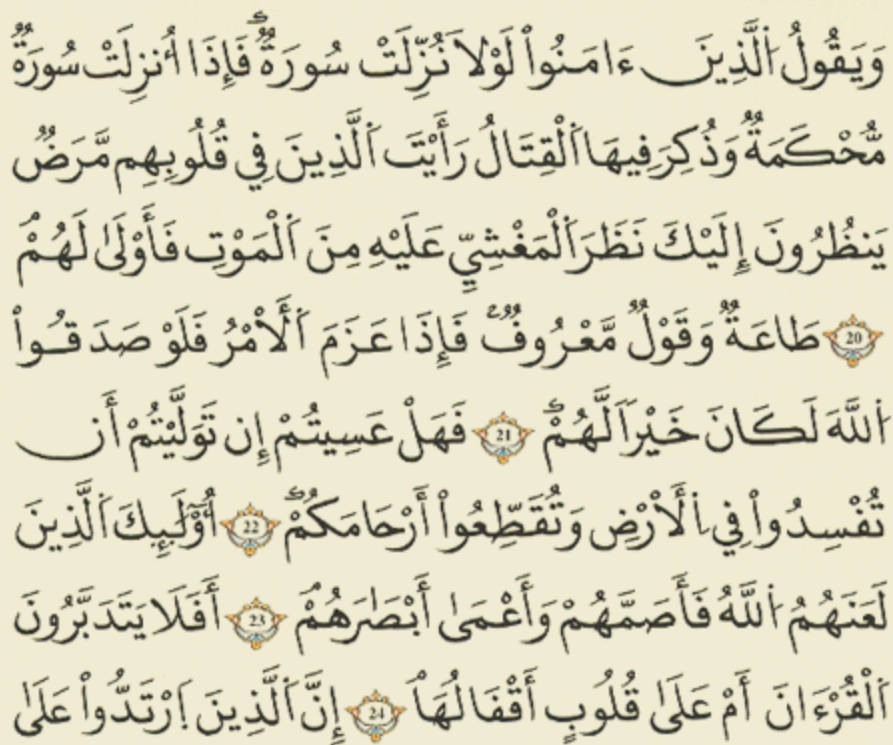 وَيَقُولُ اُ۬لذِينَ ءَامَنُواْ لَوْلَا نُزِّلَتْ سُورَةٞۖ فَإِذَا أُنزِلَتْ سُورَةٞ
مُّحْكَمَةٞ وَذُكِرَ فِيهَا اَ۬لْقِتَالُ رَأَيْتَ اَ۬لَّذِينَ فِي قُلُوبِهِم مَّرَضٞ
يَنظُرُونَ إِلَيْكَ نَظَرَ اَ۬لْمَغْشِيِّ عَلَيْهِ مِنَ اَ۬لْمَوْتِ فَأَوْلَىٰ لَهُمْ
20 طَاعَةٞ وَقَوْلٞ مَّعْرُوفٞ فَإِذَا عَزَمَ اَ۬لْأَمْرُ فَلَوْ صَدَقُواْ
اُ۬للَّهَ لَكَانَ خَيْراٗ لَّهُمْ 21 فَهَلْ عَسِيتُمْ إِن تَوَلَّيْتُمْ أَن
تُفْسِدُواْ فِي اِ۬لْأَرْضِ وَتُقَطِّعُواْ أَرْحَامَكُمْ 22 أُوْلَٰٓئِكَ اَ۬لَّذِينَ
لَعَنَهُمُ اُ۬للَّهُ فَأَصَمَّهُمْ وَأَعْمَىٰ أَبْصَٰرَهُمْ 23 أَفَلَا يَتَدَبَّرُونَ
اَ۬لْقُرْءَانَ أَمْ عَلَىٰ قُلُوبٍ أَقْفَالُهَا 24 إِنَّ اَ۬لَّذِينَ اَ۪رْتَدُّواْ عَلَىٰ